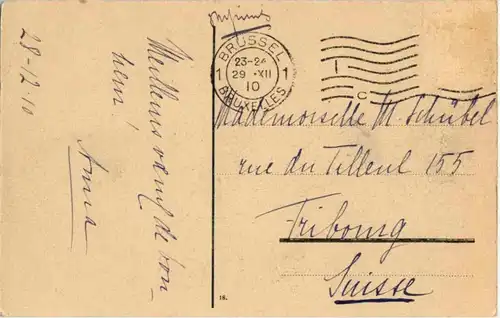 28-12-10
Meilleurs vœux de bon-
heur!
Anna
BRUSSEL
23-24
1 29 · XII 1
10
BRUXELLES
1
C
Mademoiselle M. Schübel
rue du Tilleul 155
Fribourg
Suisse
16.